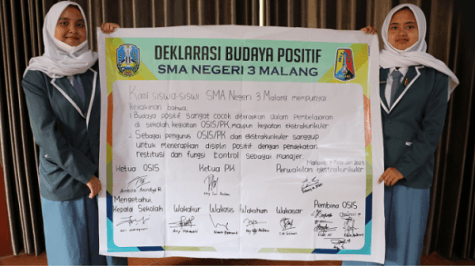 DEKLARASI BUDAYA POSITIF
SMA NEGERI 3 MALANG
Kami siswa-siswi SMA Negeri 3 Malang
bahwa
1. Budaya positif sangat cocok diterapkan dalam Pembelajaran
di sekolah kegiatan OSIS/PK maupun kegiatan ekstrakurikuler
2. Sebagai pengurus OSIS/PK dan ekstrakurikuler sanggup
untuk menerapkan disiplin positif dengan pendekatan
restitusi dan fungsi kontrol sebagai manajer.
Malang,
Ketua OSIS Ketua PK Perwakilan ekstrakurikuler
Mengetahui,
Kepala Sekolah Wakakur Wakasis Wakahum Wakasar Pembina OSIS